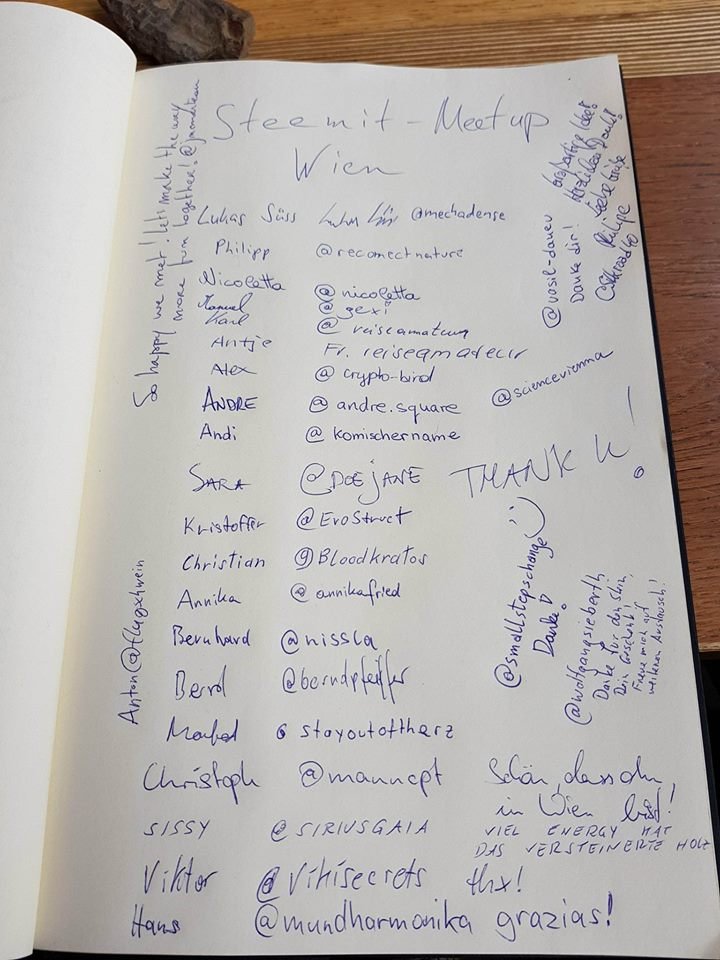 Steemit - Meetup
Wien
So happy we met! Let's make the way
more fun together! @jaomditeam
Lukas Süss @mechadense
Philipp @reconnectnature
Nicoletta @nicoletta
Manuel @gexi
Karl @reiseamateur
Antje Fr. reiseamateur
Alex @crypto-bird
ANDRE @andre.square
Andi @komischername
SARA @DOEJANE
Kristoffer @EvoStruct
Christian @Bloodkratos
Annika @annikafried
Bernhard @nissla
Bernd @berndpfeiffer
Manfred @stayoutoftherz
Christoph @manncpt Schön, dass du
in Wien bist!
SISSY @SIRIUSGAIA VIEL ENERGY HAT
DAS VERSTEINERTE HOLZ
Viktor @Vikisecrets thx!
Hans @mundharmonika grazias!
Anton @flugschwein
@vasil-danev
Danke dir!
Großartige Idee!
Herzlichen Dank!
Liebe Grüße
Philipe
@sciencevienna
THANK U!
@smallstepschange :)
Danke!
@wolfgangsieberth
Danke für den Stein,
Dein Geschenk!
Freue mich auf
weiteren Austausch!